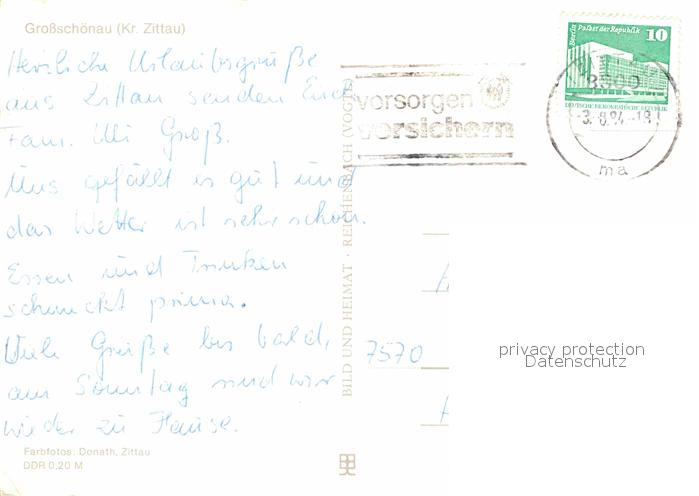 Großschönau (Kr. Zittau)
Herzliche Urlaubsgrüße
aus Zittau senden Euch
Fam. Uli Groß.
Uns gefällt es gut und
das Wetter ist sehr schön.
Essen und Trinken
schmeckt prima.
Viele Grüße bis bald,
am Sonntag sind wir
wieder zu Hause.
Farbfotos: Donath, Zittau
DDR 0,20 M
BILD UND HEIMAT · REICHENBACH (VOGTL)
vorsorgen
versichern
Berlin, Palast der Republik
10
DEUTSCHE DEMOKRATISCHE REPUBLIK
-3.8.84-18
ma
7570
privacy protection
Datenschutz